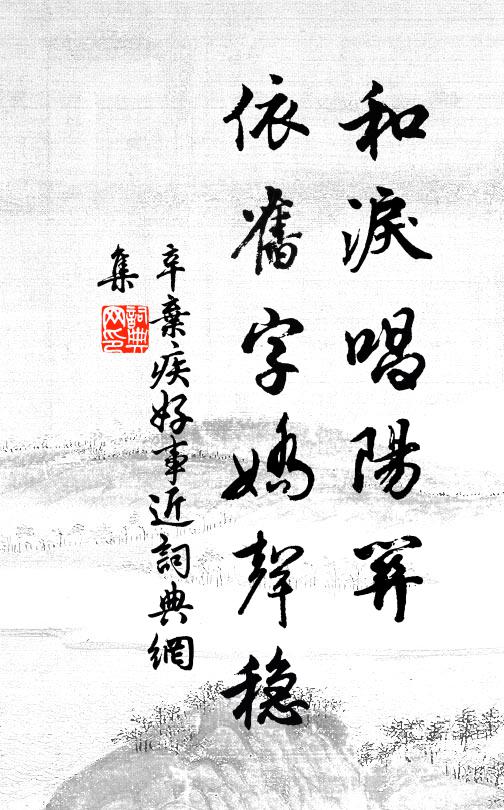 和淚唱陽關
依舊字嬌聲穩
辛棄疾好事近詞典網
集
詞典
网印